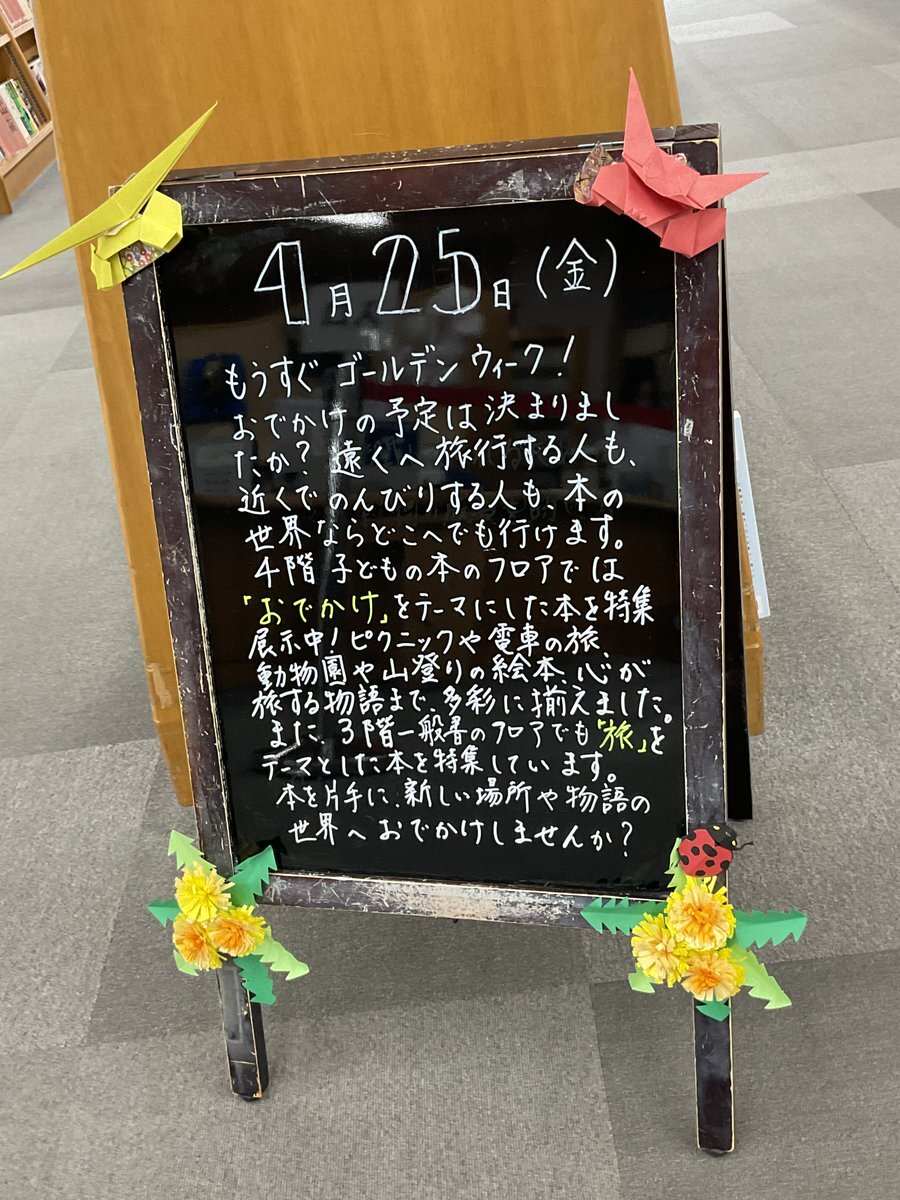 4月25日(金)
もうすぐゴールデンウィーク!
おでかけの予定は決まりまし
たか? 遠くへ旅行する人も、
近くでのんびりする人も、本の
世界ならどこへでも行けます。
4階子どもの本のフロアでは
「おでかけ」をテーマにした本を特集
展示中!ピクニックや電車の旅、
動物園や山登りの絵本、心が
旅する物語まで、多彩に揃えました。
また、3階一般書のフロアでも「旅」を
テーマとした本を特集しています。
本を片手に、新しい場所や物語の
世界へおでかけしませんか?